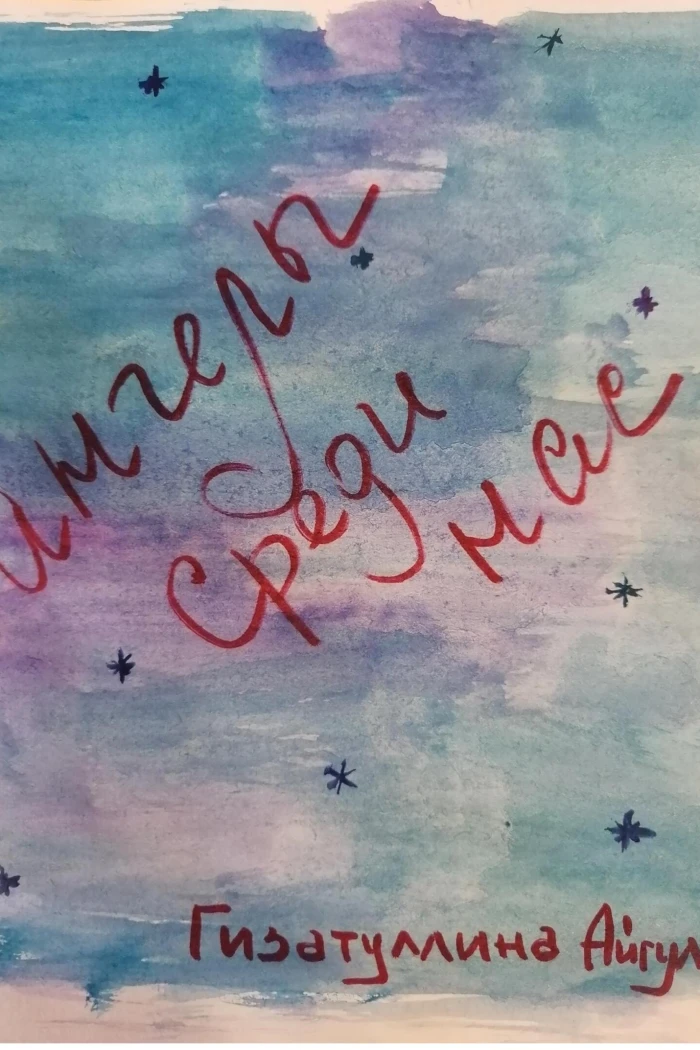 Ангелы
Среди
нас
Гизатуллина Айгул